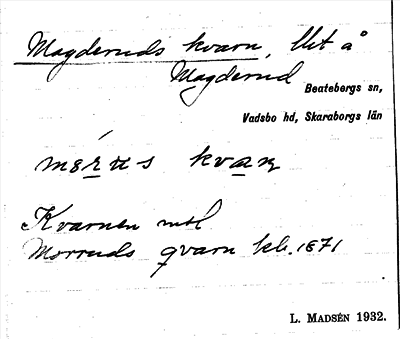 Magderuds kvarn, lht å
Magderud
Beatebergs sn,
Vadsbo hd, Skaraborgs län
kvaṇ
Kvarnen
Morruds qvarn kb. 1871
L. MADSÉN 1932.